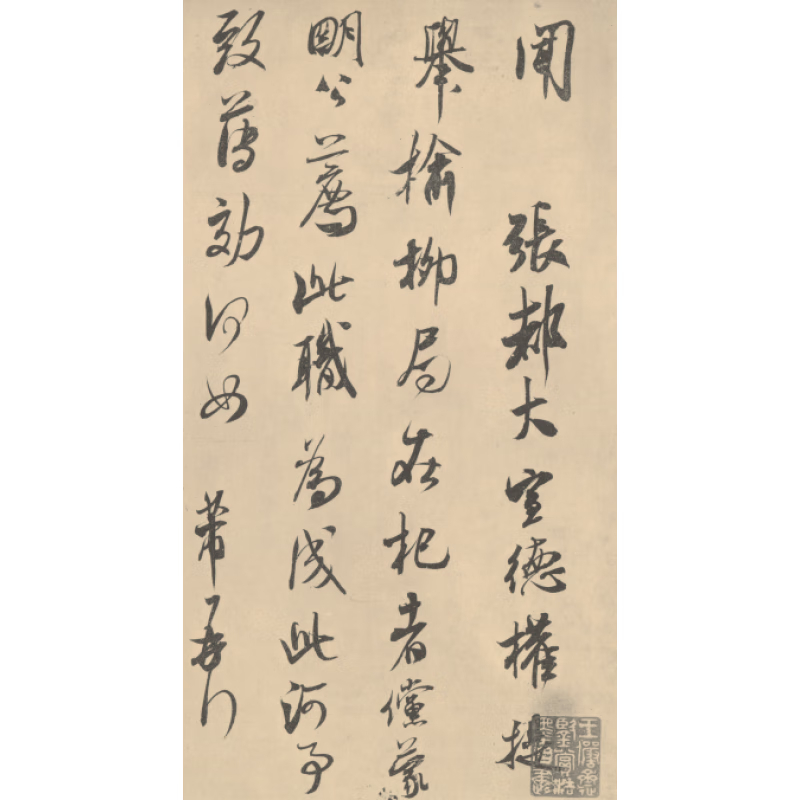 聞 張都大宣德權提
舉榆柳局在杞者儻蒙
明公薦此職為成此河事
致薄効何如 芾再拜